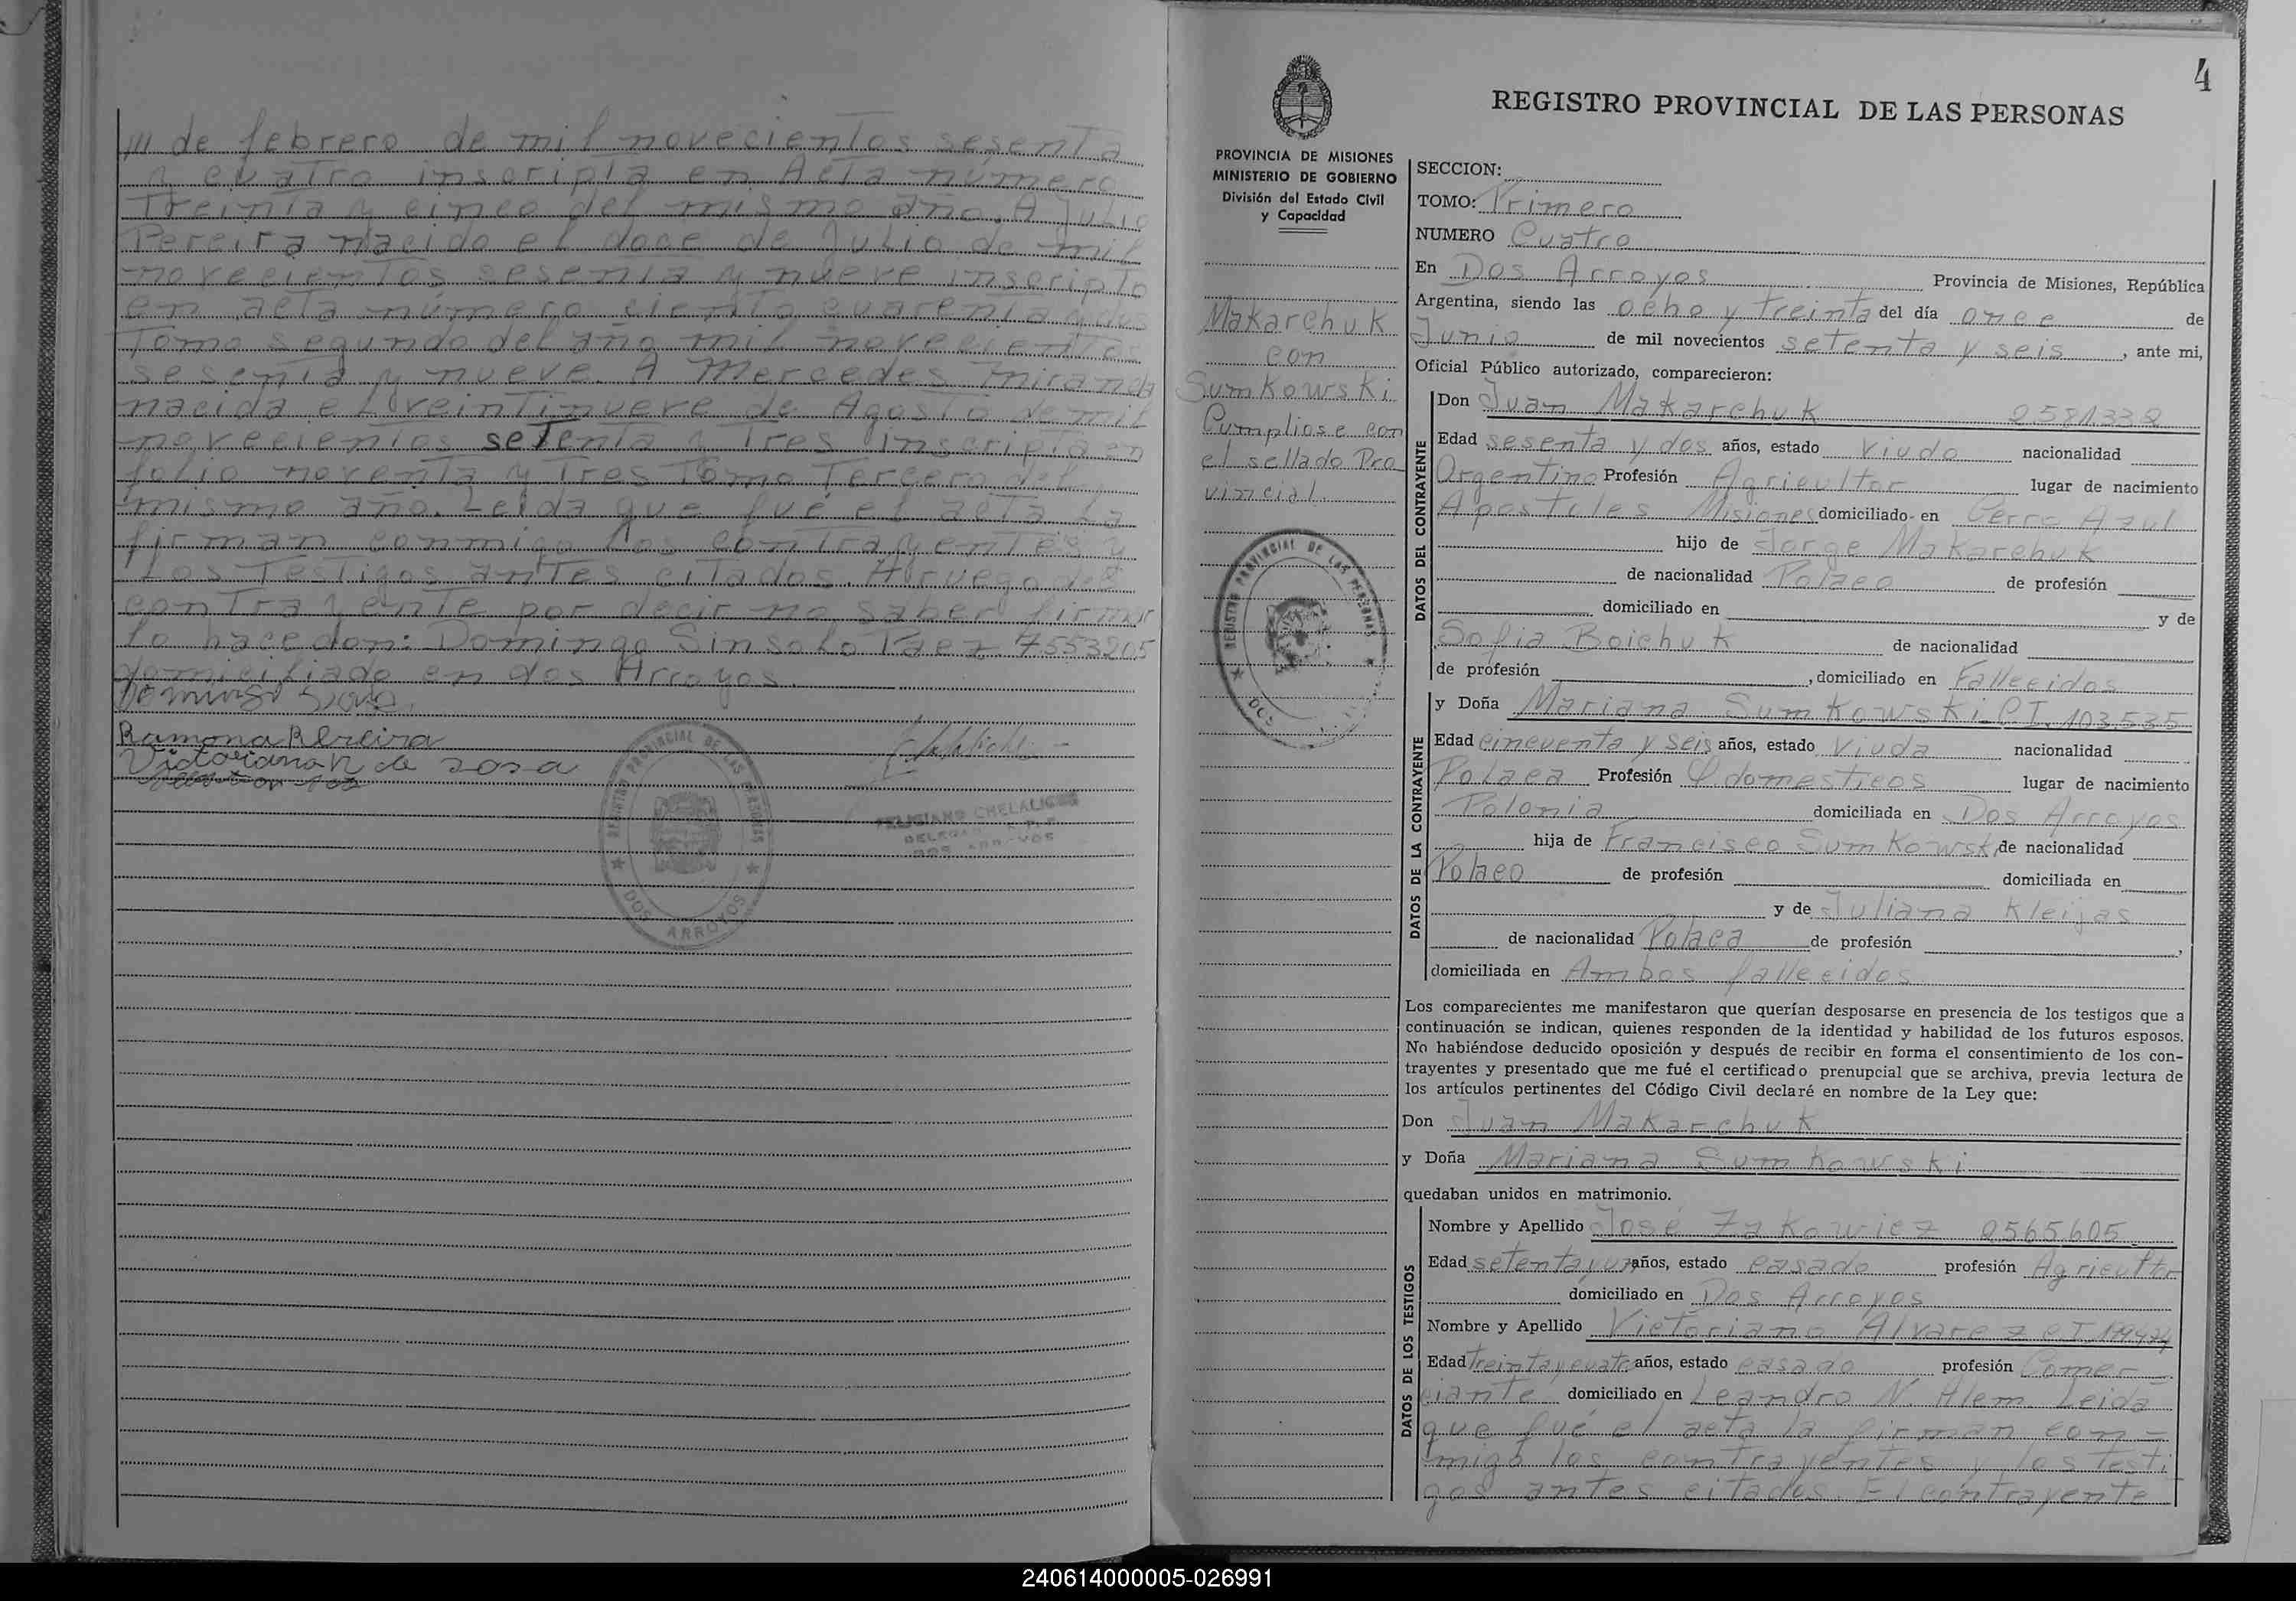 /// de febrero de mil novecientos sesenta
y cuatro inscripta en Acta número
Treinta y cinco del mismo año. A Julio
Pereira nacido el doce de Julio de mil
novecientos sesenta y nueve inscripto
en acta número ciento cuarenta y dos
Tomo segundo del año mil novecientos
sesenta y nueve. A Mercedes Miranda
nacida el veintinueve de Agosto de mil
novecientos setenta y tres inscripta en
folio noventa y tres Tomo Tercero del
mismo año. Leida que fué el acta la
firman conmigo los contrayentes y
los Testigos antes citados. A ruego del
contrayente por decir no saber firmar
lo hace don: Domingo Sinsolo Paez 7553205
domiciliado en dos Arroyos.
Ramona Pereira
Victoriana R de sosa
REGISTRO PROVINCIAL DE LAS PERSONAS
DOS ARROYOS
FELICIANO CHELALICHE
DOS ARROYOS
4
REGISTRO PROVINCIAL DE LAS PERSONAS
PROVINCIA DE MISIONES
MINISTERIO DE GOBIERNO
División del Estado Civil
y Capacidad
Makarchuk
con
Sumkowski
Cumpliose con
el sellado Pro
vincial.
REGISTRO PROVINCIAL DE LAS PERSONAS
DOS
SECCION:
TOMO: Primero
NUMERO Cuatro
En Dos Arroyos Provincia de Misiones, República
Argentina, siendo las ocho y treinta del día once de
Junio de mil novecientos setenta y seis, ante mi,
Oficial Público autorizado, comparecieron:
DATOS DEL CONTRAYENTE
Don Juan Makarchuk 2581332
Edad sesenta y dos años, estado viudo nacionalidad
Argentino Profesión Agricultor lugar de nacimiento
Apostoles Misiones domiciliado en Cerro Azul
hijo de Jorge Makarchuk
de nacionalidad Polaco de profesión
domiciliado en y de
Sofia Boichuk de nacionalidad
de profesión , domiciliado en Fallecidos
DATOS DE LA CONTRAYENTE
y Doña Mariana Sumkowski C.I. 103.535
Edad cincuenta y seis años, estado Viuda nacionalidad
Polaca Profesión Q. domesticos lugar de nacimiento
Polonia domiciliada en Dos Arroyos
hija de Francisco Sumkowski de nacionalidad
Polaco de profesión domiciliada en
y de Juliana Kleijas
de nacionalidad Polaca de profesión ,
domiciliada en Ambos fallecidos
Los comparecientes me manifestaron que querían desposarse en presencia de los testigos que a
continuación se indican, quienes responden de la identidad y habilidad de los futuros esposos.
No habiéndose deducido oposición y después de recibir en forma el consentimiento de los con-
trayentes y presentado que me fué el certificado prenupcial que se archiva, previa lectura de
los artículos pertinentes del Código Civil declaré en nombre de la Ley que:
Don Juan Makarchuk
y Doña Mariana Sumkowski
quedaban unidos en matrimonio.
DATOS DE LOS TESTIGOS
Nombre y Apellido José Zakowicz 0565605
Edad setenta y un años, estado casado profesión Agricultor
domiciliado en Dos Arroyos
Nombre y Apellido Victoriano Alvarez C.I.
Edad Treinta y cuatro años, estado casado profesión Comer
ciante domiciliado en Leandro N. Alem Leida
que fué el acta la firman con-
migo los contrayentes y los Testi
gos antes citados. El contrayente
240614000005-026991